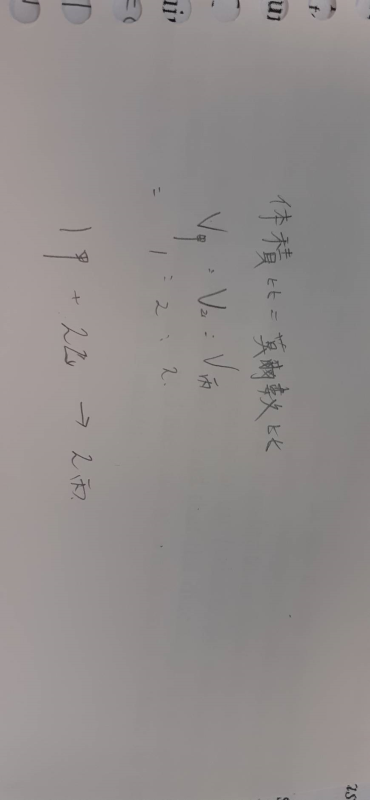 体積比=莫爾數比
V甲:V乙:V丙
= 1:2:2
1甲+2乙→2丙